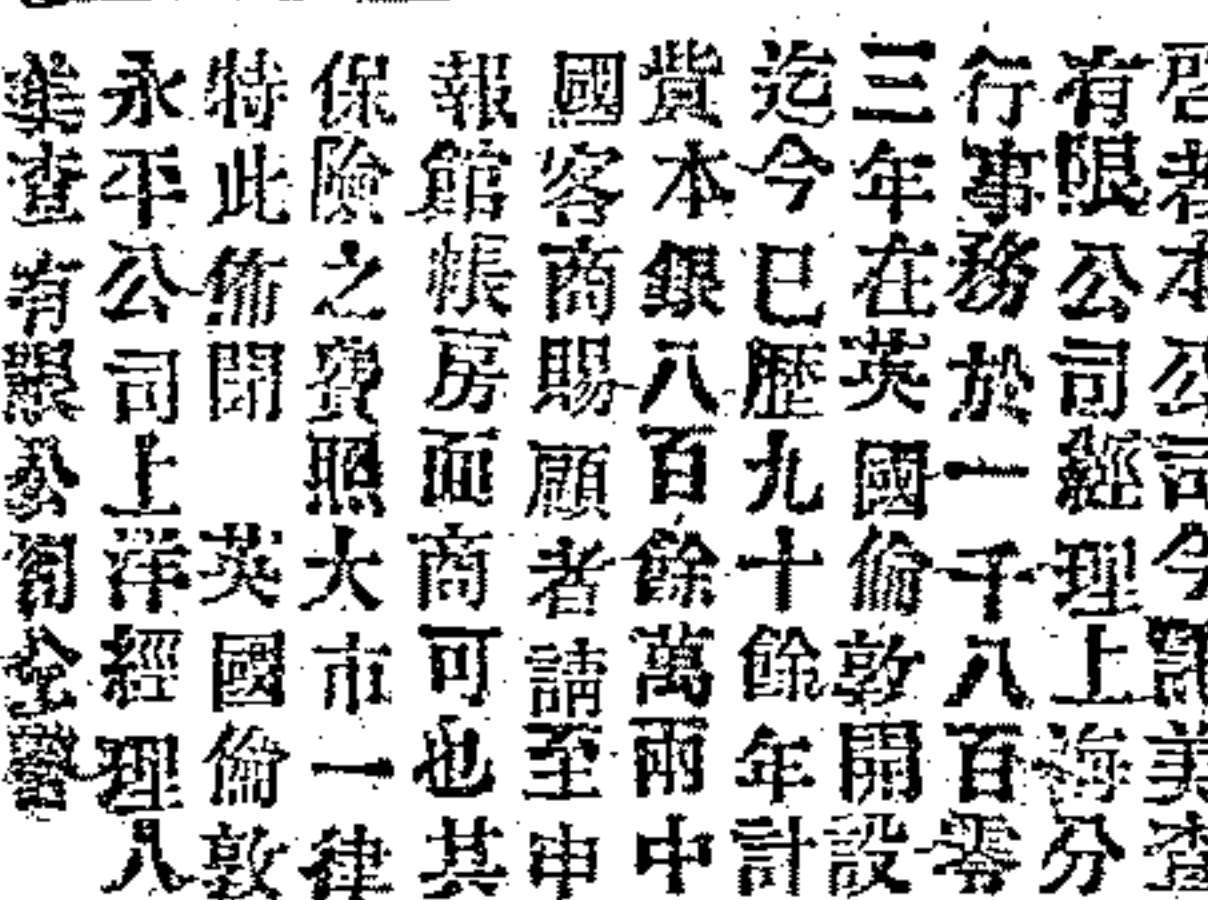 啓者本公司今訊美查
有限公司經理上海分
行事務於一千八百零
三年在英國倫敦開設
迄今已歷九十餘年計
貲本銀八百餘萬兩中
國客商賜顧者請至申
報館帳房面商可也其
保險之費照大市一律
特此佈聞 英國倫敦
永平公司上洋經理人
美查有限公司仝啓